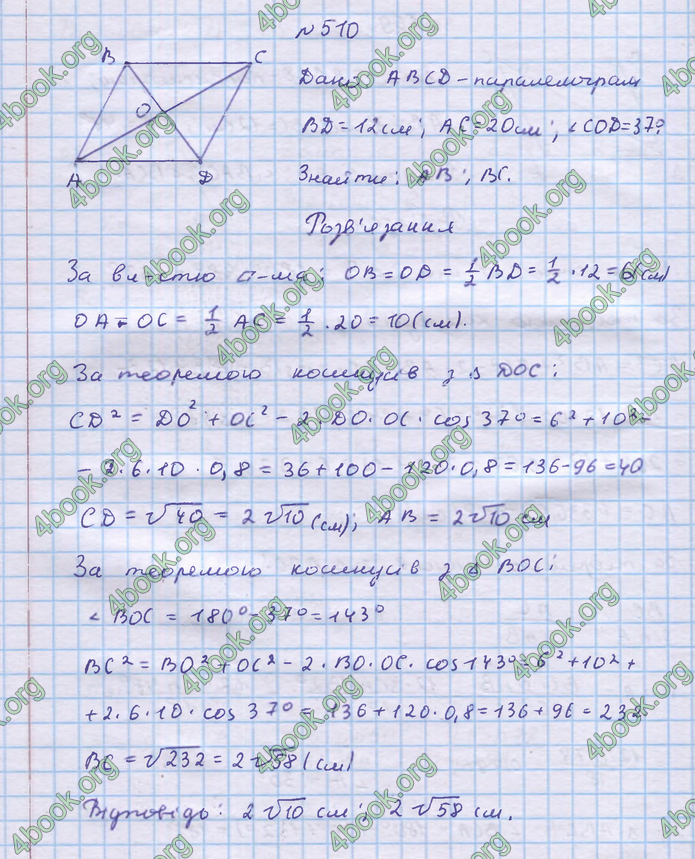 №510
B C
Дано: ABCD - паралелограм
O
BD = 12 см; AC = 20 см; ∠COD = 37°.
A D
Знайти: AB; BC.
Розв'язання
За вл-стю п-ма: OB = OD = 1/2 BD = 1/2 · 12 = 6 (см)
OA = OC = 1/2 AC = 1/2 · 20 = 10 (см).
За теоремою косинусів з Δ DOC:
CD² = DO² + OC² - 2 · DO · OC · cos 37° = 6² + 10² -
- 2 · 6 · 10 · 0,8 = 36 + 100 - 120 · 0,8 = 136 - 96 = 40
CD = √40 = 2√10 (см); AB = 2√10 см
За теоремою косинусів з Δ BOC:
∠ BOC = 180° - 37° = 143°
BC² = BO² + OC² - 2 · BO · OC · cos 143° = 6² + 10² +
+ 2 · 6 · 10 · cos 37° = 136 + 120 · 0,8 = 136 + 96 = 232
BC = √232 = 2√58 (см)
Відповідь: 2√10 см; 2√58 см.
4book.org